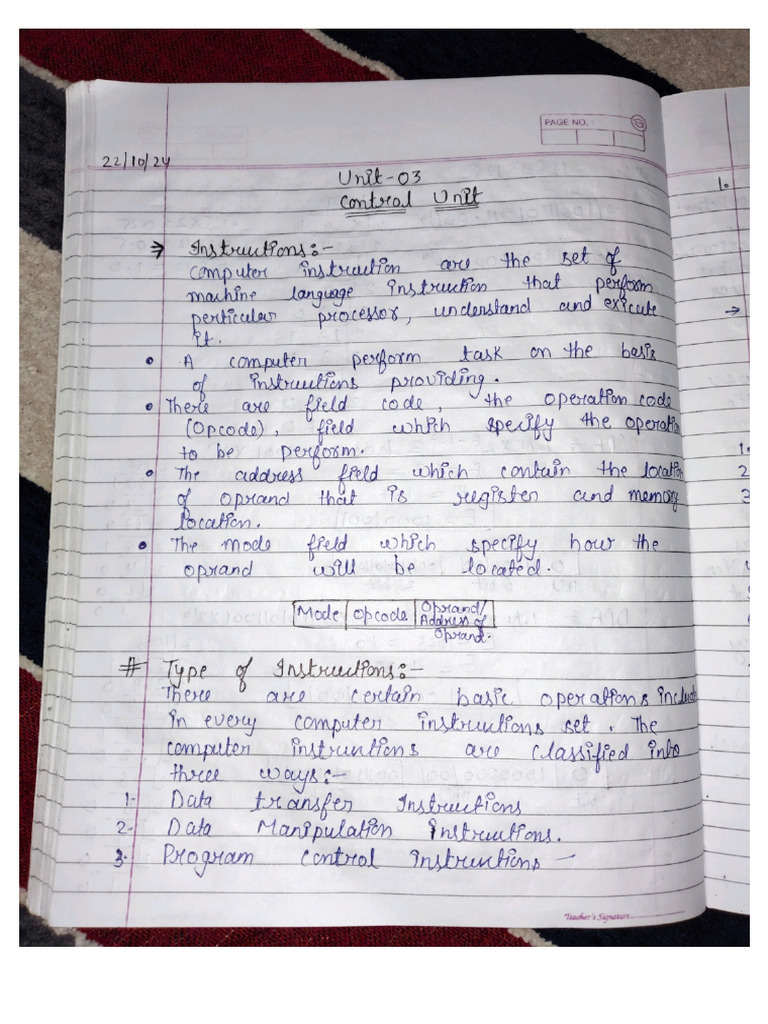 PAGE NO. :
22/10/24
Unit-03
Control Unit
⇒ Instructions:-
Computer instruction are the set of
machine language instruction that perform
perticular processor, understand and exicute
it.
• A computer perform task on the basis
of instructions providing.
• There are field code, the operation code
(Opcode), field which specify the operation
to be perform.
• The address field which contain the location
of oprand that is register and memory
location.
• The mode field which specify how the
oprand will be located.
Mode | opcode | Oprand/
Address of
Oprand.
# Type of Instructions:-
There are certain basic operations include
in every computer instructions set. The
computer instructions are classified into
three ways:-
1- Data transfer Instructions
2- Data Manipulation instructions.
3- Program control instructions -
Teacher's Signature
1.
→
1.
2
3